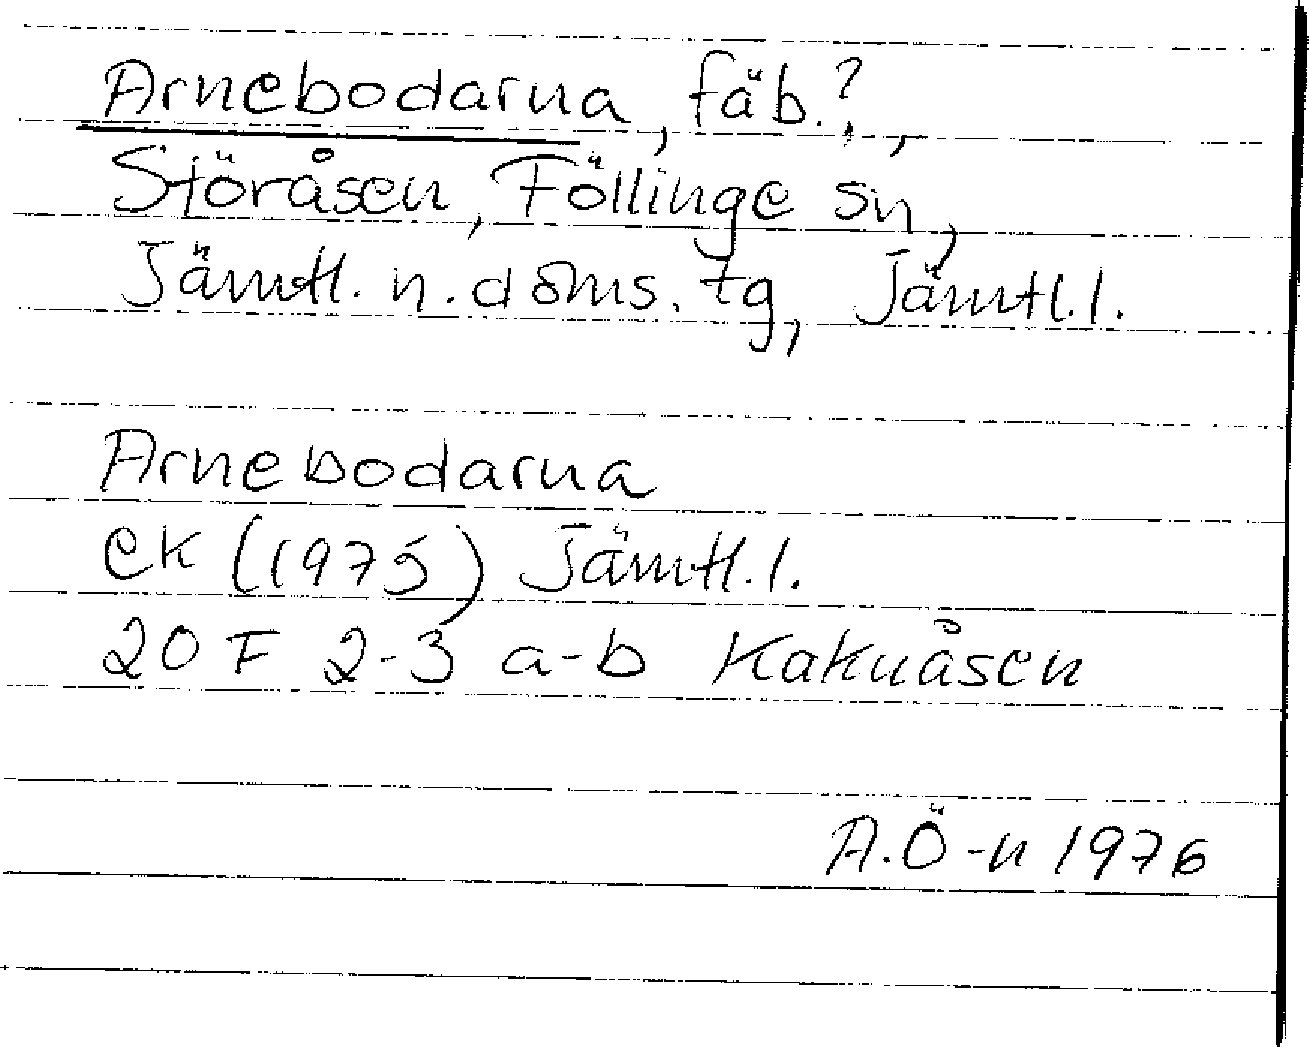 Arnebodarna, fäb.?,
Störåsen, Föllinge sn,
Jämtl. n. doms. tg, Jämtl. l.
Arnebodarna
ek (1975) Jämtl. l.
20 F 2-3 a-b Kakuåsen
A.Ö-n 1976